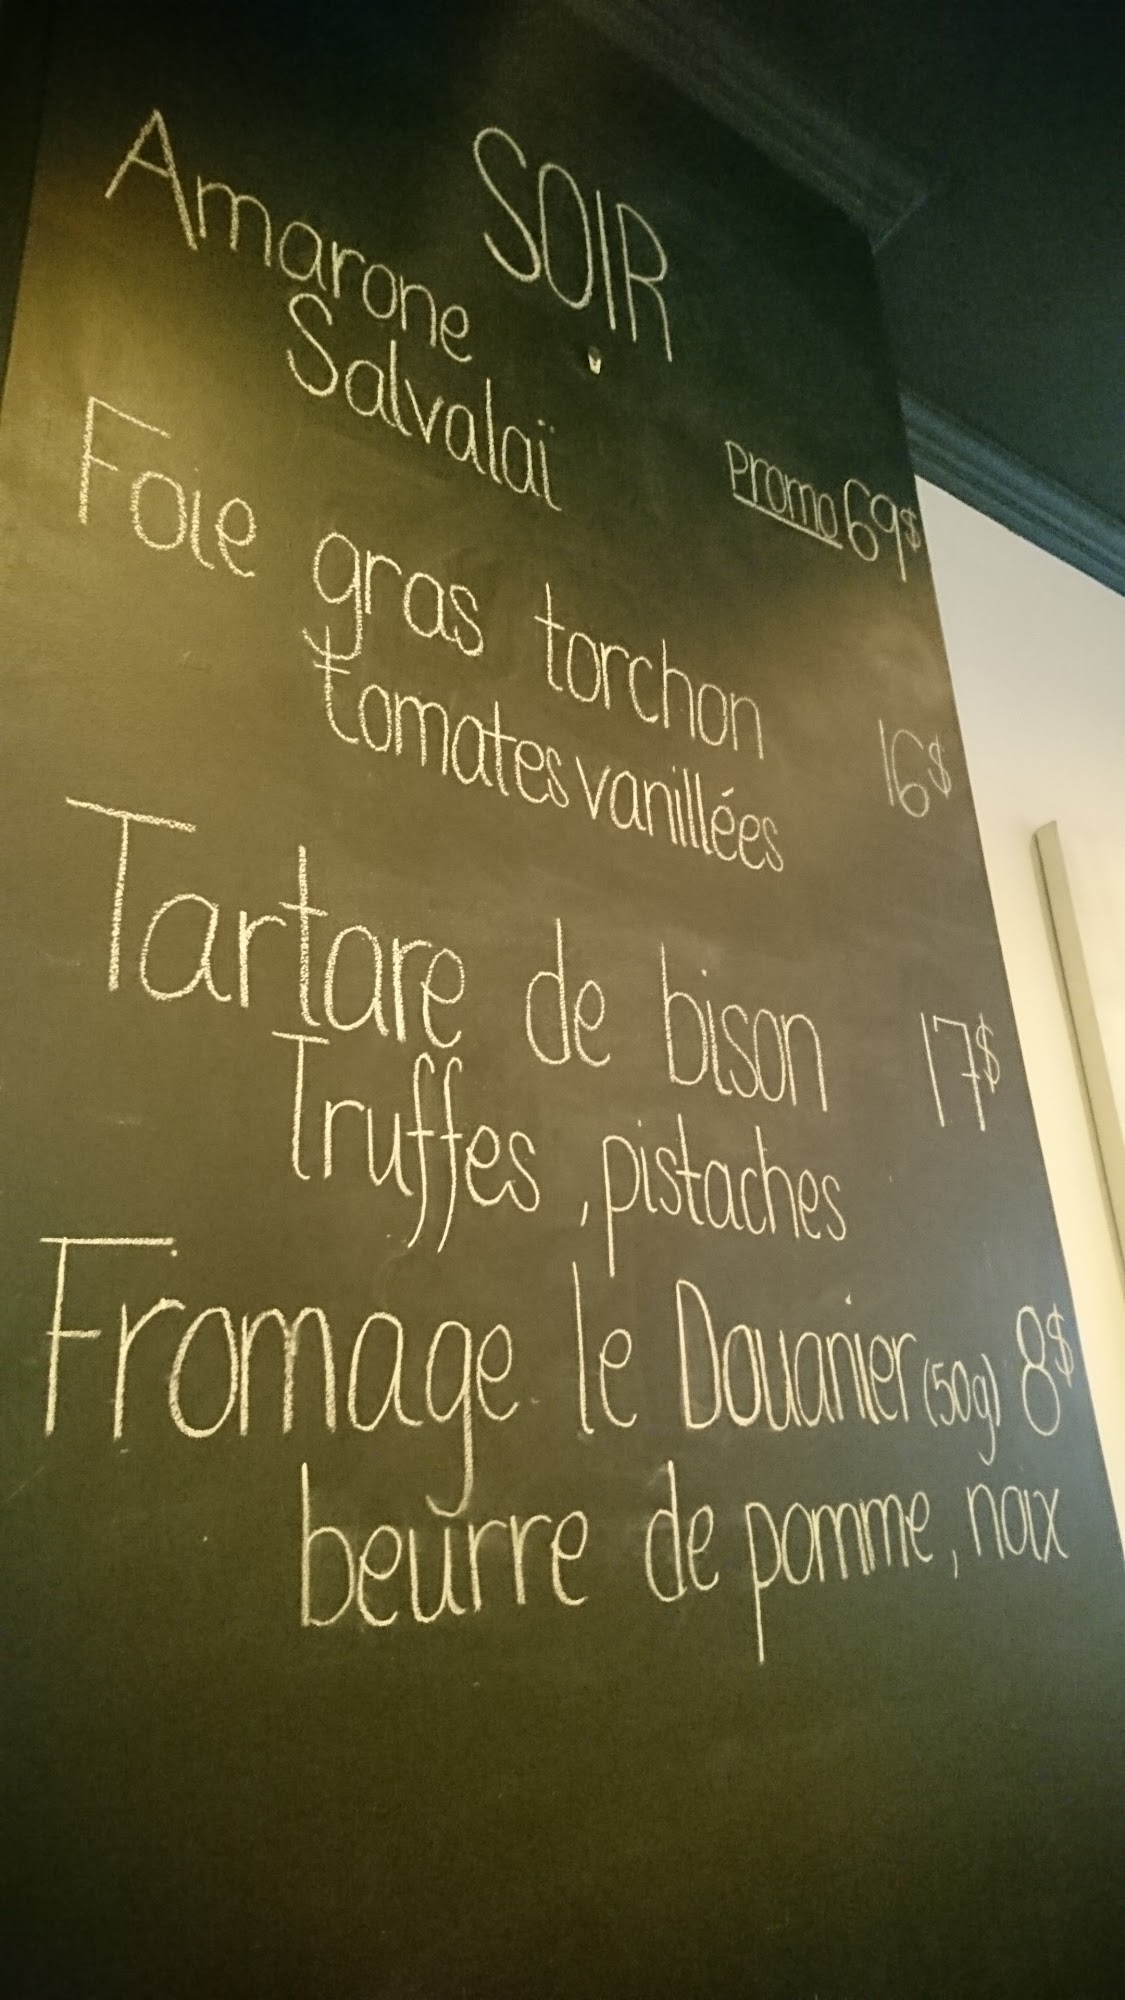 SOIR
Amarone
Salvalaï
promo 69$
Foie gras torchon
tomates vanillées 16$
Tartare de bison 17$
Truffes, pistaches
Fromage le Douanier (50g) 8$
beurre de pomme, noix